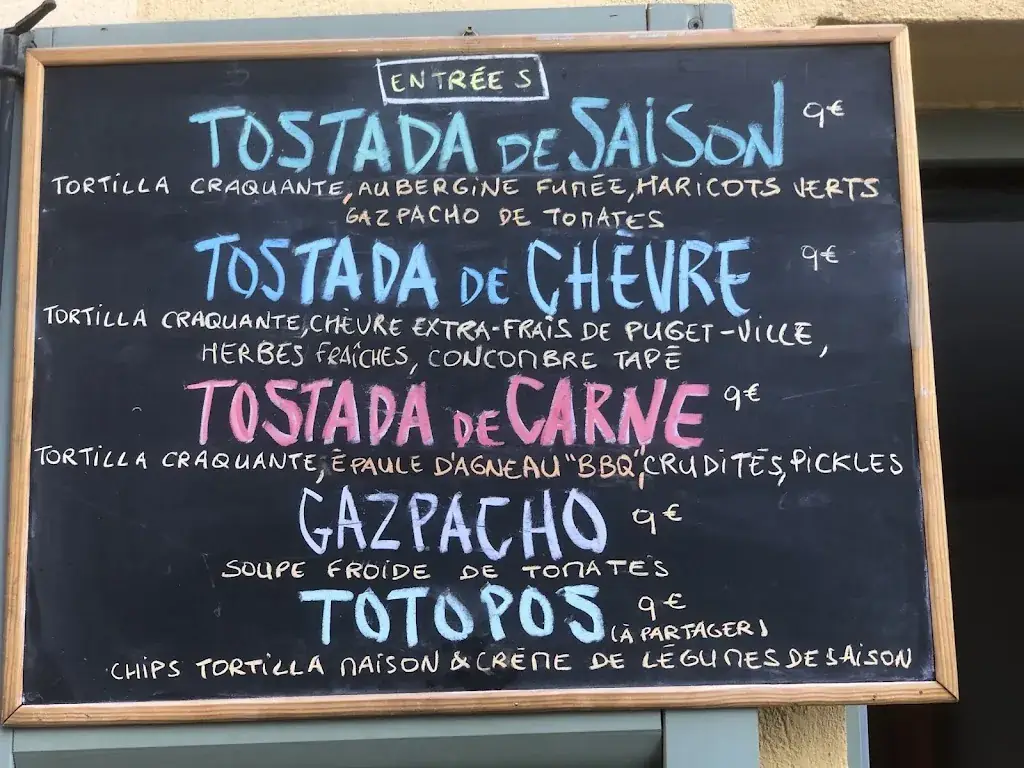 ENTRÉES
TOSTADA DE SAISON 9€
TORTILLA CRAQUANTE, AUBERGINE FUMÉE, HARICOTS VERTS
GAZPACHO DE TOMATES
TOSTADA DE CHÈVRE 9€
TORTILLA CRAQUANTE, CHÈVRE EXTRA-FRAIS DE PUGET-VILLE,
HERBES FRAÎCHES, CONCOMBRE TAPÉ
TOSTADA DE CARNE 9€
TORTILLA CRAQUANTE, ÉPAULE D'AGNEAU "BBQ", CRUDITÉS, PICKLES
GAZPACHO 9€
SOUPE FROIDE DE TOMATES
TOTOPOS 9€
(À PARTAGER)
CHIPS TORTILLA MAISON & CRÈME DE LÉGUMES DE SAISON